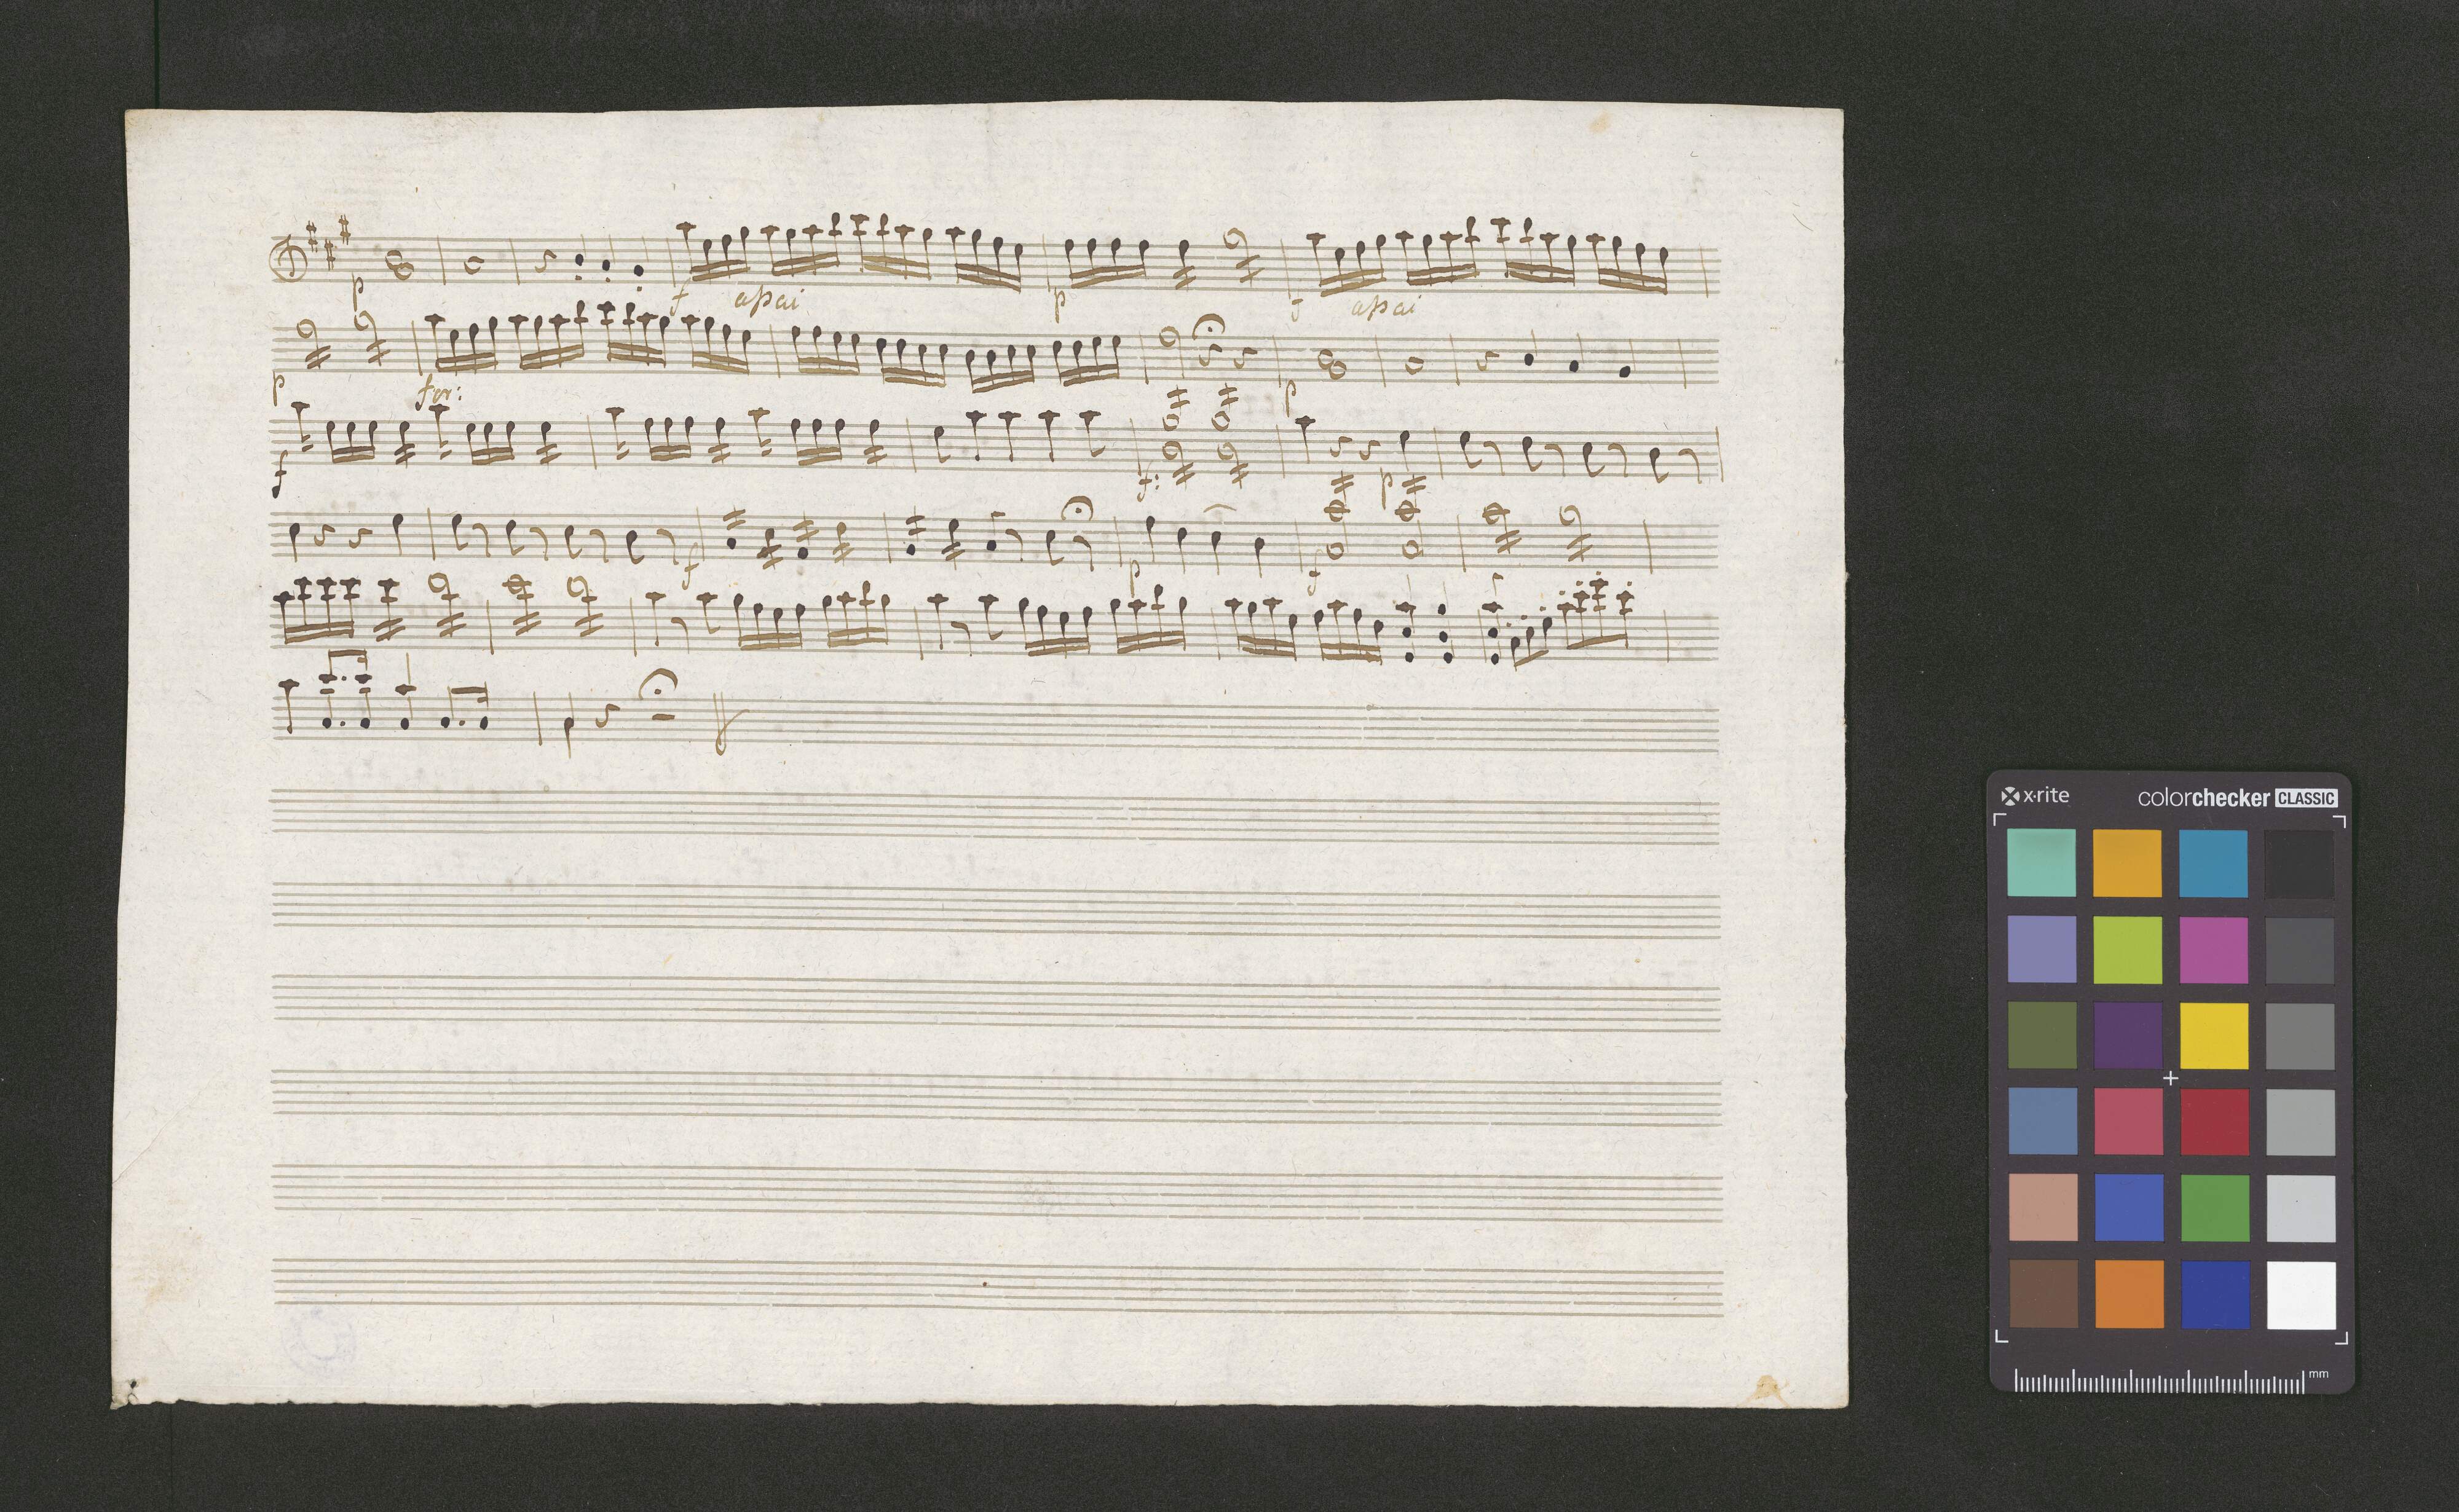 p f aſsai p f aſsai
p for: p
f f: p
f p f
x·rite colorchecker CLASSIC
mm